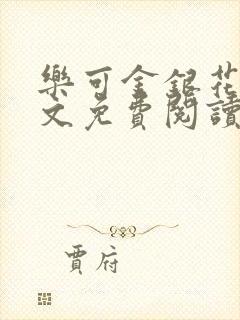 樂可金銀花
文免費閱讀
賈府